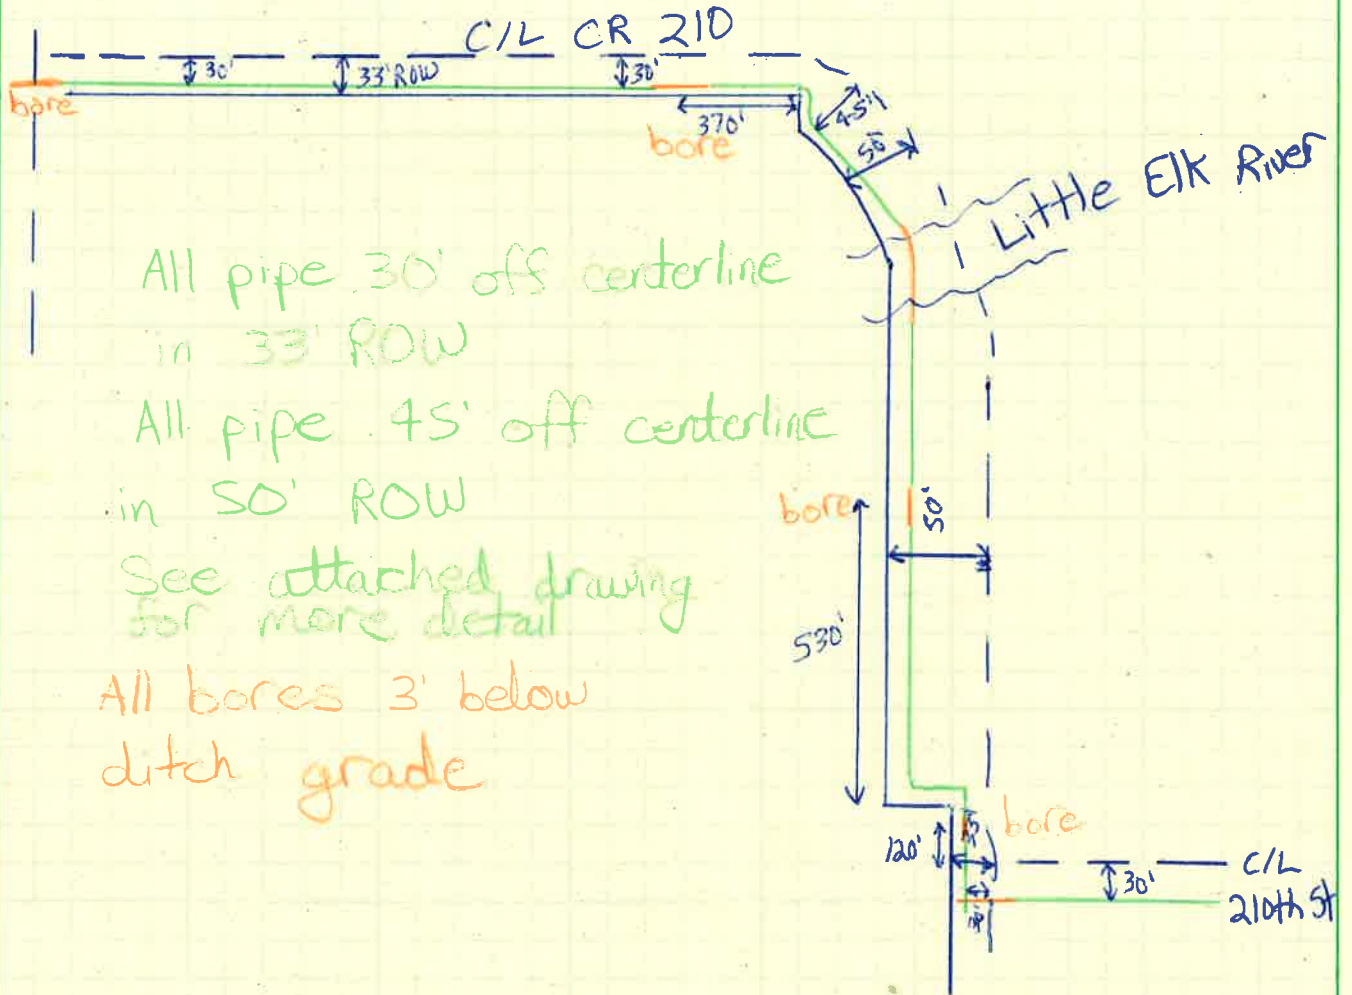 C/L CR 210
30'
33' ROW
30'
bore
370'
bore
45'
50'
Little Elk River
All pipe 30' off centerline
in 33' ROW
All pipe 45' off centerline
in 50' ROW
See attached drawing
for more detail
All bores 3' below
ditch grade
bore
50'
530'
bore
120'
C/L
30'
210th St